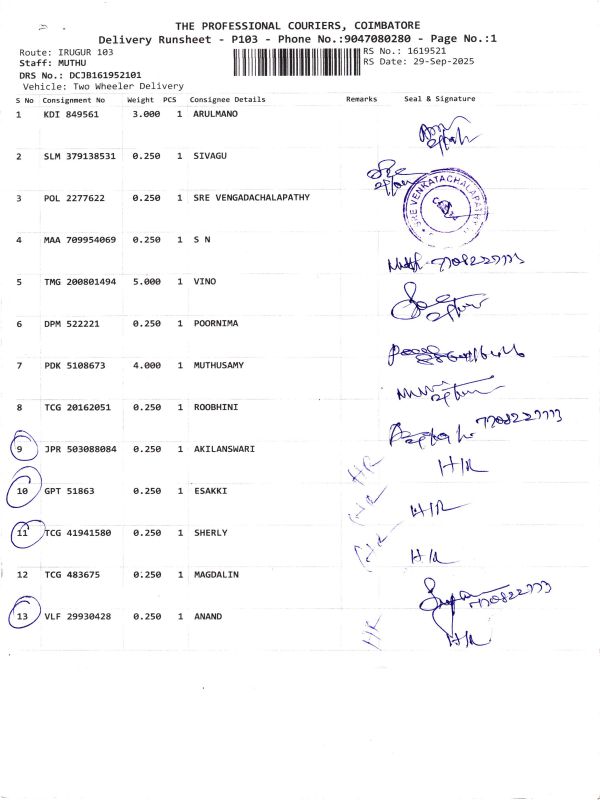 THE PROFESSIONAL COURIERS, COIMBATORE
Delivery Runsheet - P103 - Phone No.:9047080280 - Page No.:1
Route: IRUGUR 103 RS No.: 1619521
Staff: MUTHU RS Date: 29-Sep-2025
DRS No.: DCJB161952101
Vehicle: Two Wheeler Delivery
S No Consignment No Weight PCS Consignee Details Remarks Seal & Signature
1 KDI 849561 3.000 1 ARULMANO
2 SLM 379138531 0.250 1 SIVAGU
3 POL 2277622 0.250 1 SRE VENGADACHALAPATHY
SRE VENKATACHALAPATHY
4 MAA 709954069 0.250 1 S N
5 TMG 200801494 5.000 1 VINO
6 DPM 522221 0.250 1 POORNIMA
7 PDK 5108673 4.000 1 MUTHUSAMY
8 TCG 20162051 0.250 1 ROOBHINI
9 JPR 503088084 0.250 1 AKILANSWARI HR H/R
10 GPT 51863 0.250 1 ESAKKI H/R H/R
11 TCG 41941580 0.250 1 SHERLY H/R H/R
12 TCG 483675 0.250 1 MAGDALIN
13 VLF 29930428 0.250 1 ANAND HR H/R